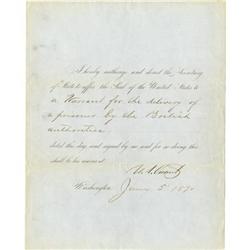 I hereby authorize and direct the Secretary
of State to affix the Seal of the United States to
a Warrant for the delivery of
a prisoner by the British
authorities
dated this day, and signed by me and for so doing this
shall be his warrant.
U.S. Grant
Washington, June 5 1870